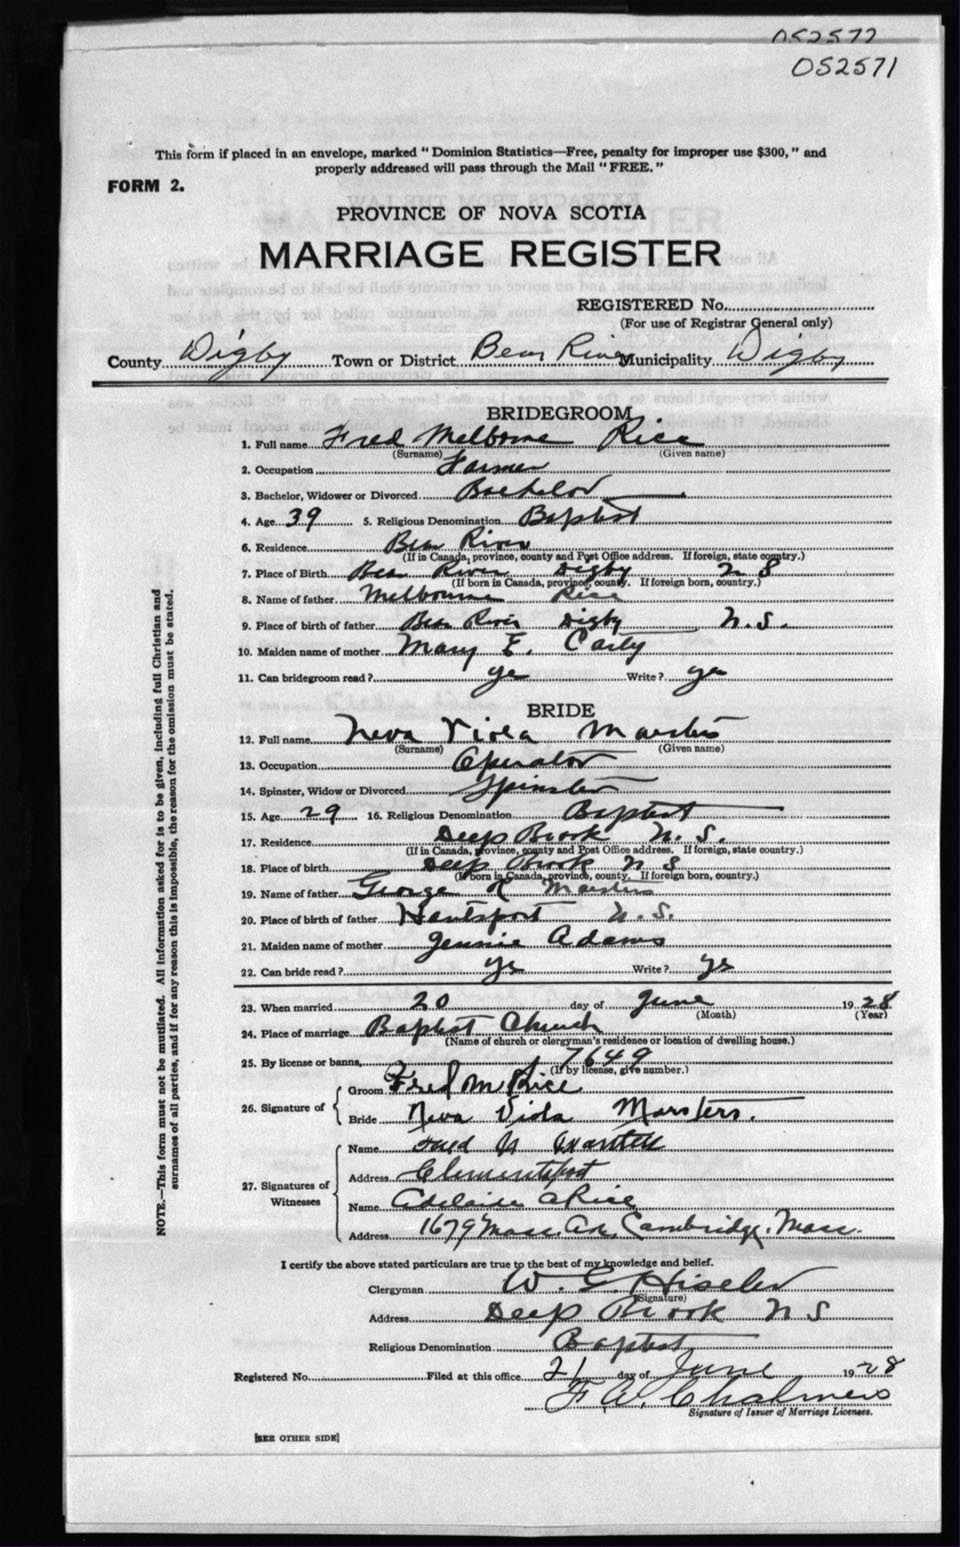 052572
052571
This form if placed in an envelope, marked "Dominion Statistics—Free, penalty for improper use $300," and
properly addressed will pass through the Mail "FREE."
FORM 2.
PROVINCE OF NOVA SCOTIA
MARRIAGE REGISTER
REGISTERED No.
(For use of Registrar General only)
County Digby Town or District Bear River Municipality Digby
BRIDEGROOM
1. Full name Fred Melborne Rice
(Surname) (Given name)
2. Occupation Farmer
3. Bachelor, Widower or Divorced Bachelor
4. Age 39 5. Religious Denomination Baptist
6. Residence Bear River
(If in Canada, province, county and Post Office address. If foreign, state country.)
7. Place of Birth Bear River Digby N S
(If born in Canada, province, county. If foreign born, country.)
8. Name of father Melbourne Rice
9. Place of birth of father Bear River Digby N.S.
10. Maiden name of mother Mary E. Carty
11. Can bridegroom read? yes Write? yes
BRIDE
12. Full name Neva Viola Marsters
(Surname) (Given name)
13. Occupation Operator
14. Spinster, Widow or Divorced Spinster
15. Age 29 16. Religious Denomination Baptist
17. Residence Deep Brook N.S.
(If in Canada, province, county and Post Office address. If foreign, state country.)
18. Place of birth Deep Brook N S
(If born in Canada, province, county. If foreign born, country.)
19. Name of father George R Marsters
20. Place of birth of father Hantsport N.S.
21. Maiden name of mother Jennie Adams
22. Can bride read? yes Write? yes
23. When married 20 day of June 1928
(Month) (Year)
24. Place of marriage Baptist Church
(Name of church or clergyman's residence or location of dwelling house.)
25. By license or banns, 7649
(If by license, give number.)
26. Signature of Groom Fred M Rice
Bride Neva Viola Marsters.
27. Signatures of Witnesses Name
Address Clementsport
Name Adelaide A Rice
Address 1679 Mass. Av. Cambridge, Mass.
I certify the above stated particulars are true to the best of my knowledge and belief.
Clergyman W. E. Hisler
(Signature)
Address Deep Brook N S
Religious Denomination Baptist
Registered No. Filed at this office 21 day of June 1928
F. W. Chalmers
Signature of Issuer of Marriage Licenses.
[SEE OTHER SIDE]
NOTE.—This form must not be mutilated. All information asked for is to be given, including full Christian and
surnames of all parties, and if for any reason this is impossible, the reason for the omission must be stated.